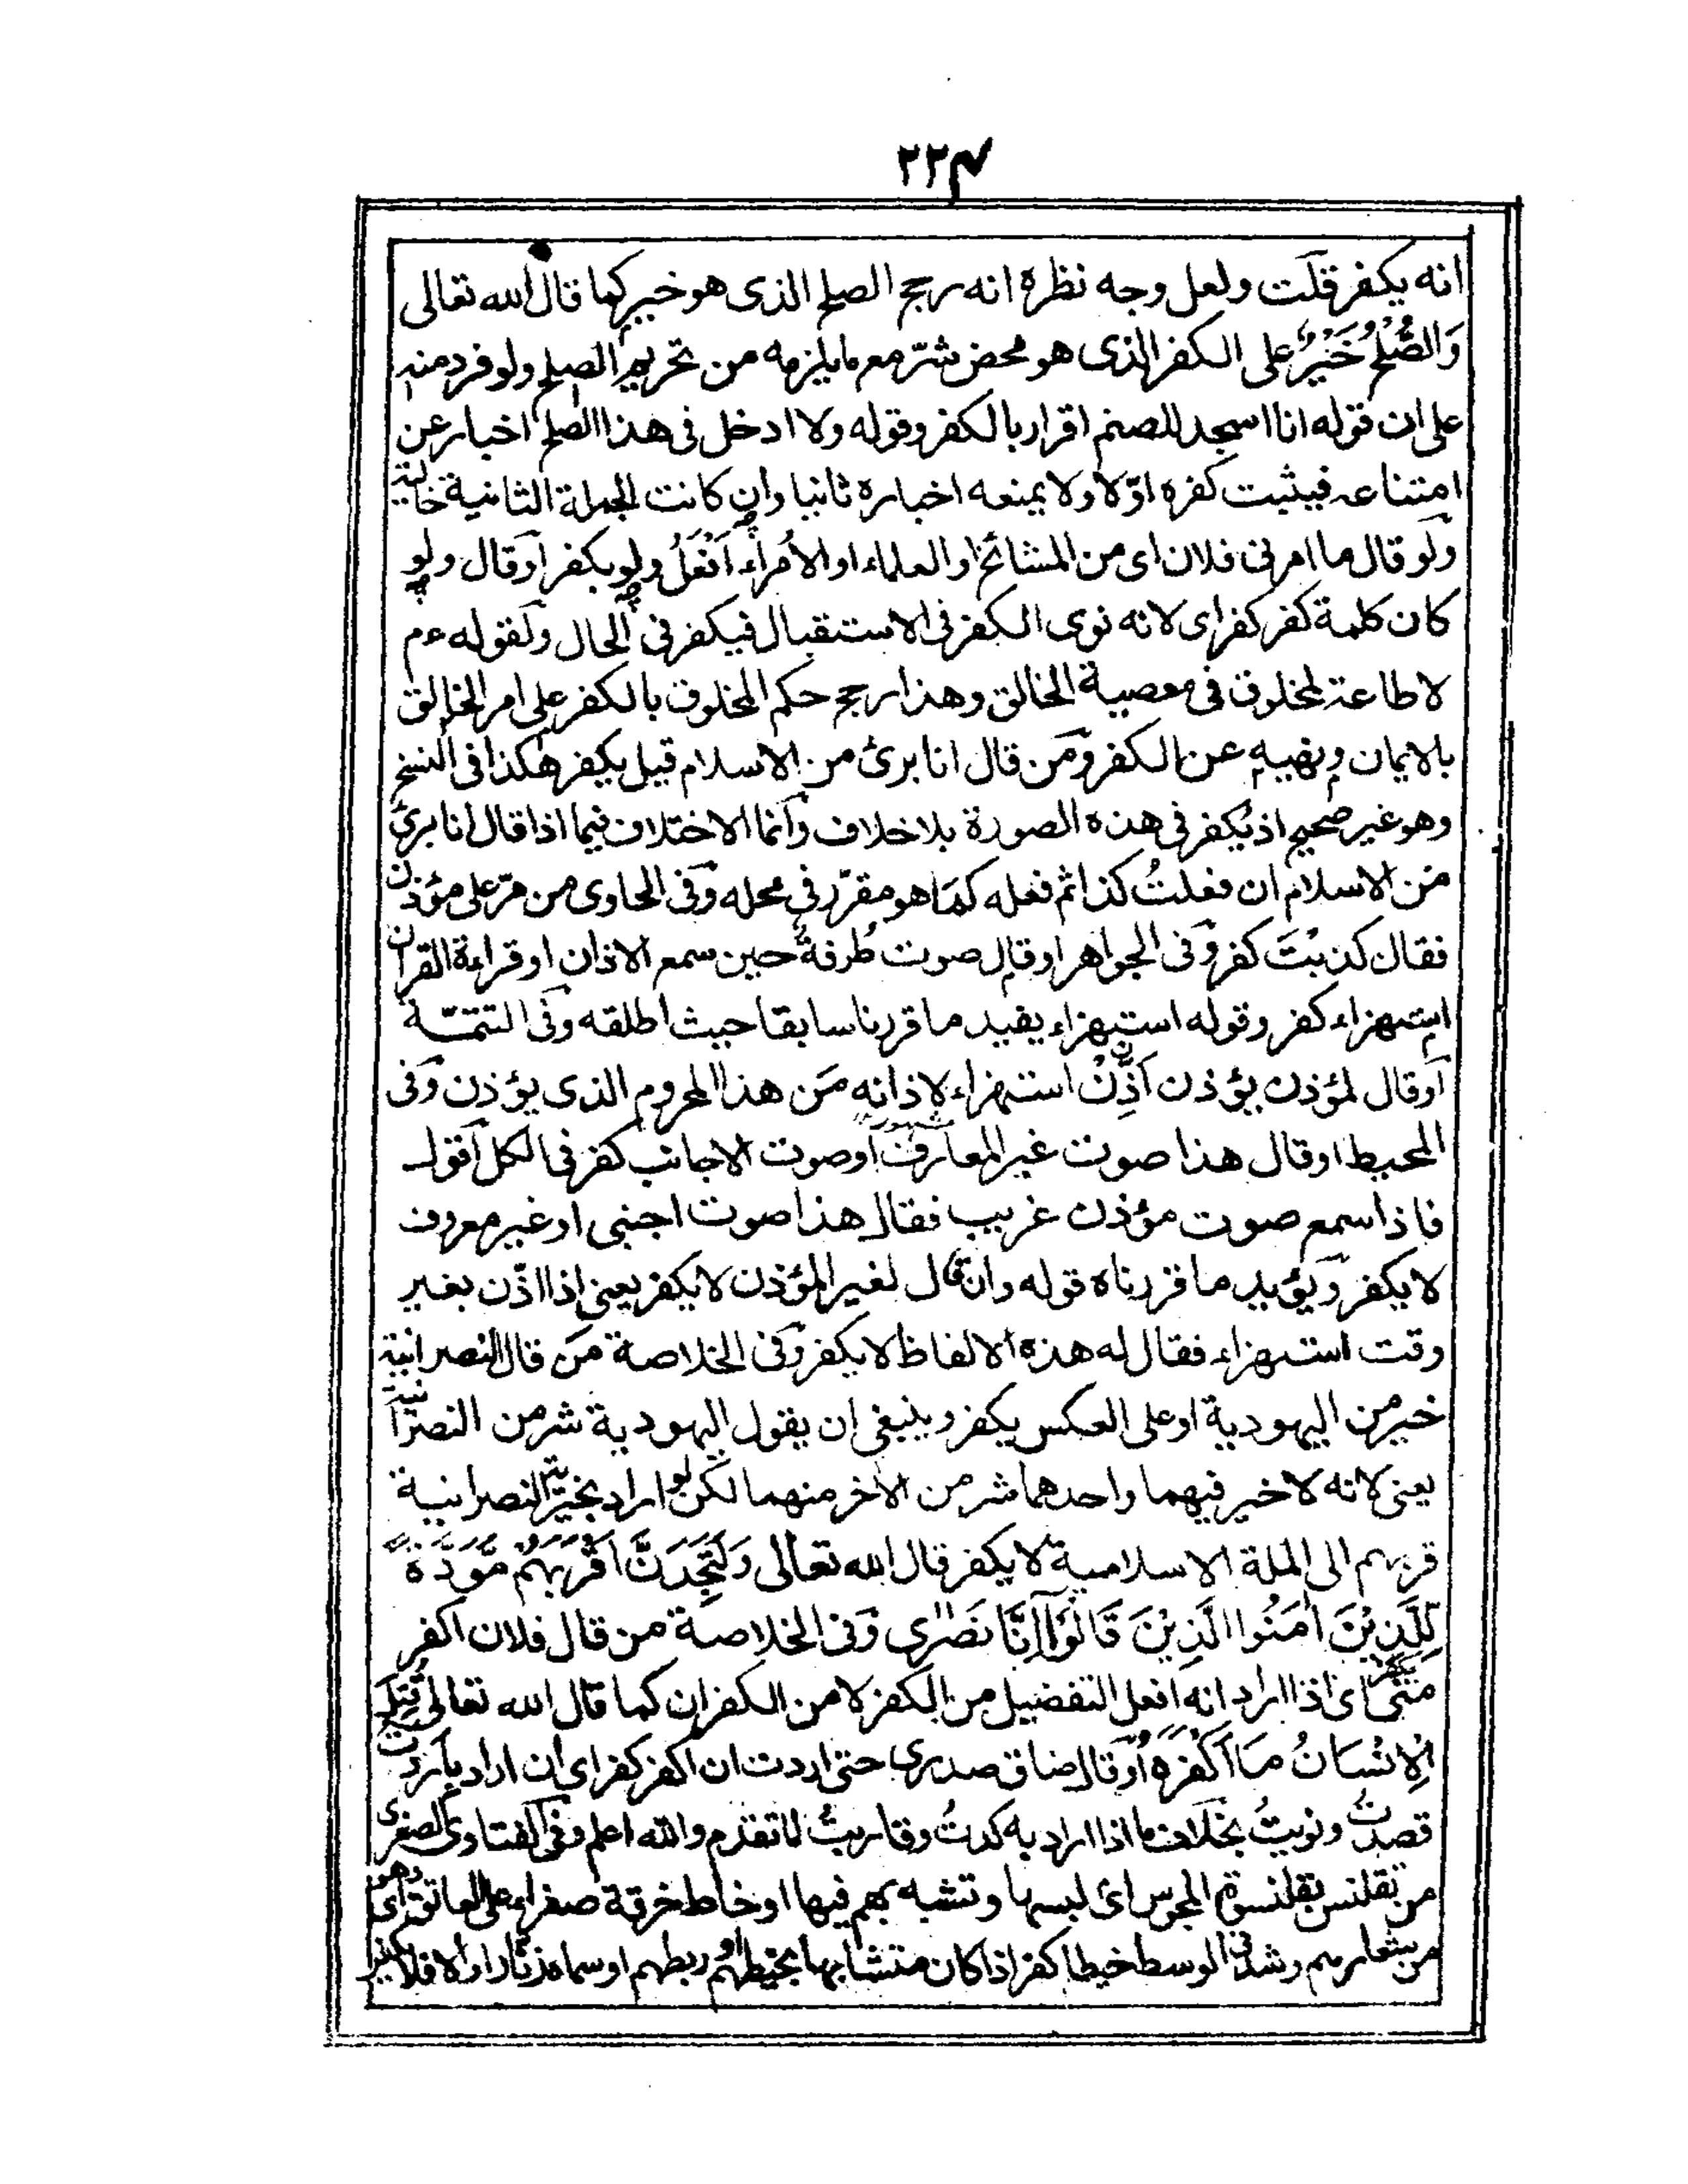 ۲۲۴
انه يكفر قلت ولعل وجه نظره انه رجح الصلح الذى هو خير كما قال الله تعالى
وَالصُّلْحُ خَيْرٌ على الكفر الذى هو محض شرّ مع ما يلزمه من تحريم الصلح ولو فرد منه
على ان قوله انا اسجد للصنم اقرار بالكفر وقوله ولا ادخل فى هذا الصلح اخبار عن
امتناعه فيثبت كفره اوّلا ولا يمنعه اخباره ثانيا وان كانت الجملة الثانية خالية
ولو قال ما امرنى فلان اى من المشائخ او العلماء او الأمراء اَفْعَلُ ولو بكفر او قال ولو
كان كلمة كفر كفر اى لانه نوى الكفر فى الاستقبال فيكفر فى الحال ولقوله عم
لا طاعة لمخلوق فى معصية الخالق وهذا رجح حكم المخلوق بالكفر على امر الخالق
بالايمان ونهيه عن الكفر ومن قال انا برئ من الاسلام قيل يكفر هكذا فى النسخ
وهو غير صحيح اذ يكفر فى هذه الصورة بلا خلاف وانما الاختلاف فيما اذا قال انا برئ
من الاسلام ان فعلتُ كذا ثم فعله كما هو مقرّر فى محله وفى الحاوى من مرّ على مؤذن
فقال كذبْتَ كفر وفى الجواهر او قال صوت طُرفةٌ حين سمع الاذان او قراءة القرآن
استهزاء كفر وقوله استهزاء يفيد ما قررنا سابقا حيث اطلقه وفى التتمّة
او قال لمؤذن يؤذن اَذِّنْ استهزاء لاذانه مَن هذا المحروم الذى يؤذن وفى
المحيط او قال هذا صوت غير المعارف او صوت الاجانب كفر فى الكل اقول
فاذا سمع صوت مؤذن غريب فقال هذا صوت اجنبى او غير معروف
لا يكفر ويؤيد ما قررناه قوله وان قال لغير المؤذن لا يكفر يعنى اذا اذّن بغير
وقت استهزاء فقال له هذه الالفاظ لا يكفر وفى الخلاصة من قال النصرانية
خير من اليهودية او على العكس يكفر وينبغى ان يقول اليهودية شر من النصرانية
يعنى لانه لا خير فيهما واحدهما شر من الأخر منهما لكن لو اراد بخيرية النصرانية
قربهم الى الملة الاسلامية لا يكفر قال الله تعالى وَلَتَجِدَنَّ اَقْرَبَهُمْ مَّوَدَّةً
لِلَّذِيْنَ اٰمَنُوا الَّذِيْنَ قَالُوْآ اِنَّا نَصٰرٰى وفى الخلاصة من قال فلان اكفر
منّى يكفر اى اذا اراد انه افعل التفضيل من الكفر لا من الكفران كما قال الله تعالى قُتِلَ
الْاِنْسَانُ مَآ اَكْفَرَهٗ او قال ضاق صدرى حتى اردت ان اكفر كفر اى ان اراد باردت
قصدتُ ونويتُ بخلاف ما اذا اراد به كدتُ وقاربتُ لما تقدم والله اعلم وفى الفتاوى الصغرى
من تقلنس بقلنسوة المجوس اى لبسها وتشبه بهم فيها او خاط خرقة صفراء على العاتق اى وهو
من شعارهم او شد فى الوسط خيطا كفر اذا كان متشابها بخيطهم او ربطهم او سماه زنّارا والا فلا يكفر